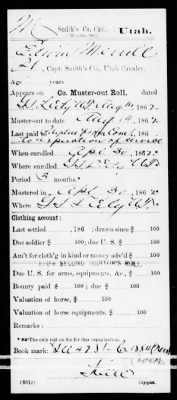 M Smith's Co, Cav. Utah.
(3 Months, 1862.)
Edwin Merrill
Pt., Capt. Smith's Co., Utah Cavalry.
Age years.
Appears on Co. Muster-out Roll, dated
G. S. L. City U.T. Aug 14, 1862.
Muster-out to date Aug 14, 1862.
Last paid
to expiration of service
When enrolled Apl 30, 1862.
Where enrolled G S L City U.T.
Period 3 months.
Mustered in Apl 30, 1862.
Where G S L City U.T.
Clothing account:
Last settled , 186 ; drawn since $ 100
Due soldier $ 100; due U. S. $ 100
Am't for cloth'g in kind or money adv'd $ 100
Due U. S. for arms, equipments, &c., $ 100
Bounty paid $ 100; due $ 100
Valuation of horse, $ 100
Valuation of horse equipments, $ 100
Remarks :
Book mark:
(361c) Copyist.